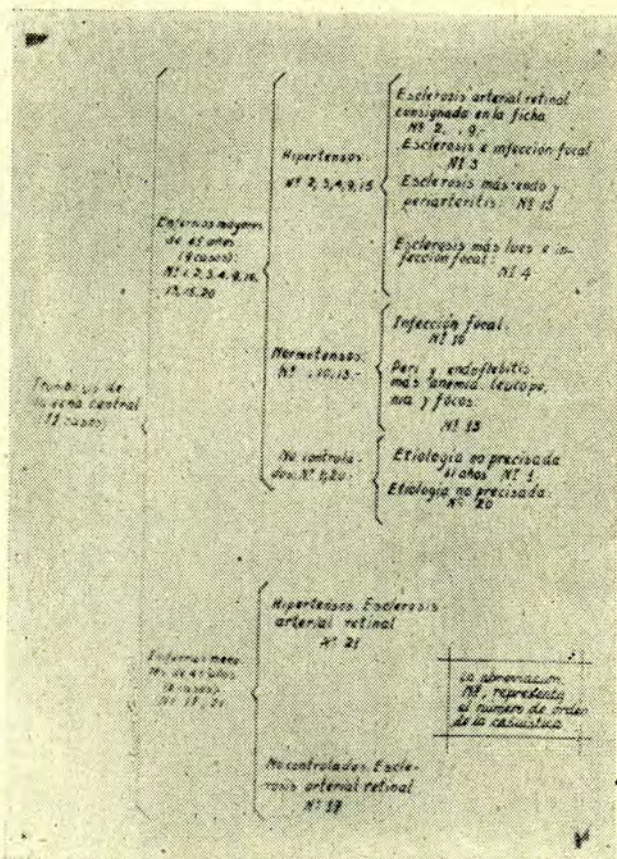 Trombosis de
la vena central
(11 casos)
Enfermos mayores
de 45 años
(9 casos):
Nº 1, 2, 3, 4, 9, 10,
13, 15, 20
Hipertensos:
Nº 2, 3, 4, 9, 15
Esclerosis arterial retinal
consignada en la ficha
Nº 2, , 9,-
Esclerosis e infección focal
Nº 3
Esclerosis más endo y
periarteritis: Nº 15
Esclerosis más lues e in-
fección focal:
Nº 4
Normotensos:
Nº , 10, 13.-
Infección focal:
Nº 10
Peri y endoflebitis
más anemia, leucope,
nia y focos:
Nº 13
No controla-
dos: Nº 1, 20.-
Etiología no precisada
años Nº 1
Etiología no precisada:
Nº 20
Enfermos meno-
res de 45 años
(2 casos)
Nº 17, 21
Hipertensos. Esclerosis
arterial retinal
Nº 21
No controlados. Escle-
rosis arterial retinal
Nº 17
La abreviación,
Nº, representa
el número de orden
de la casuística